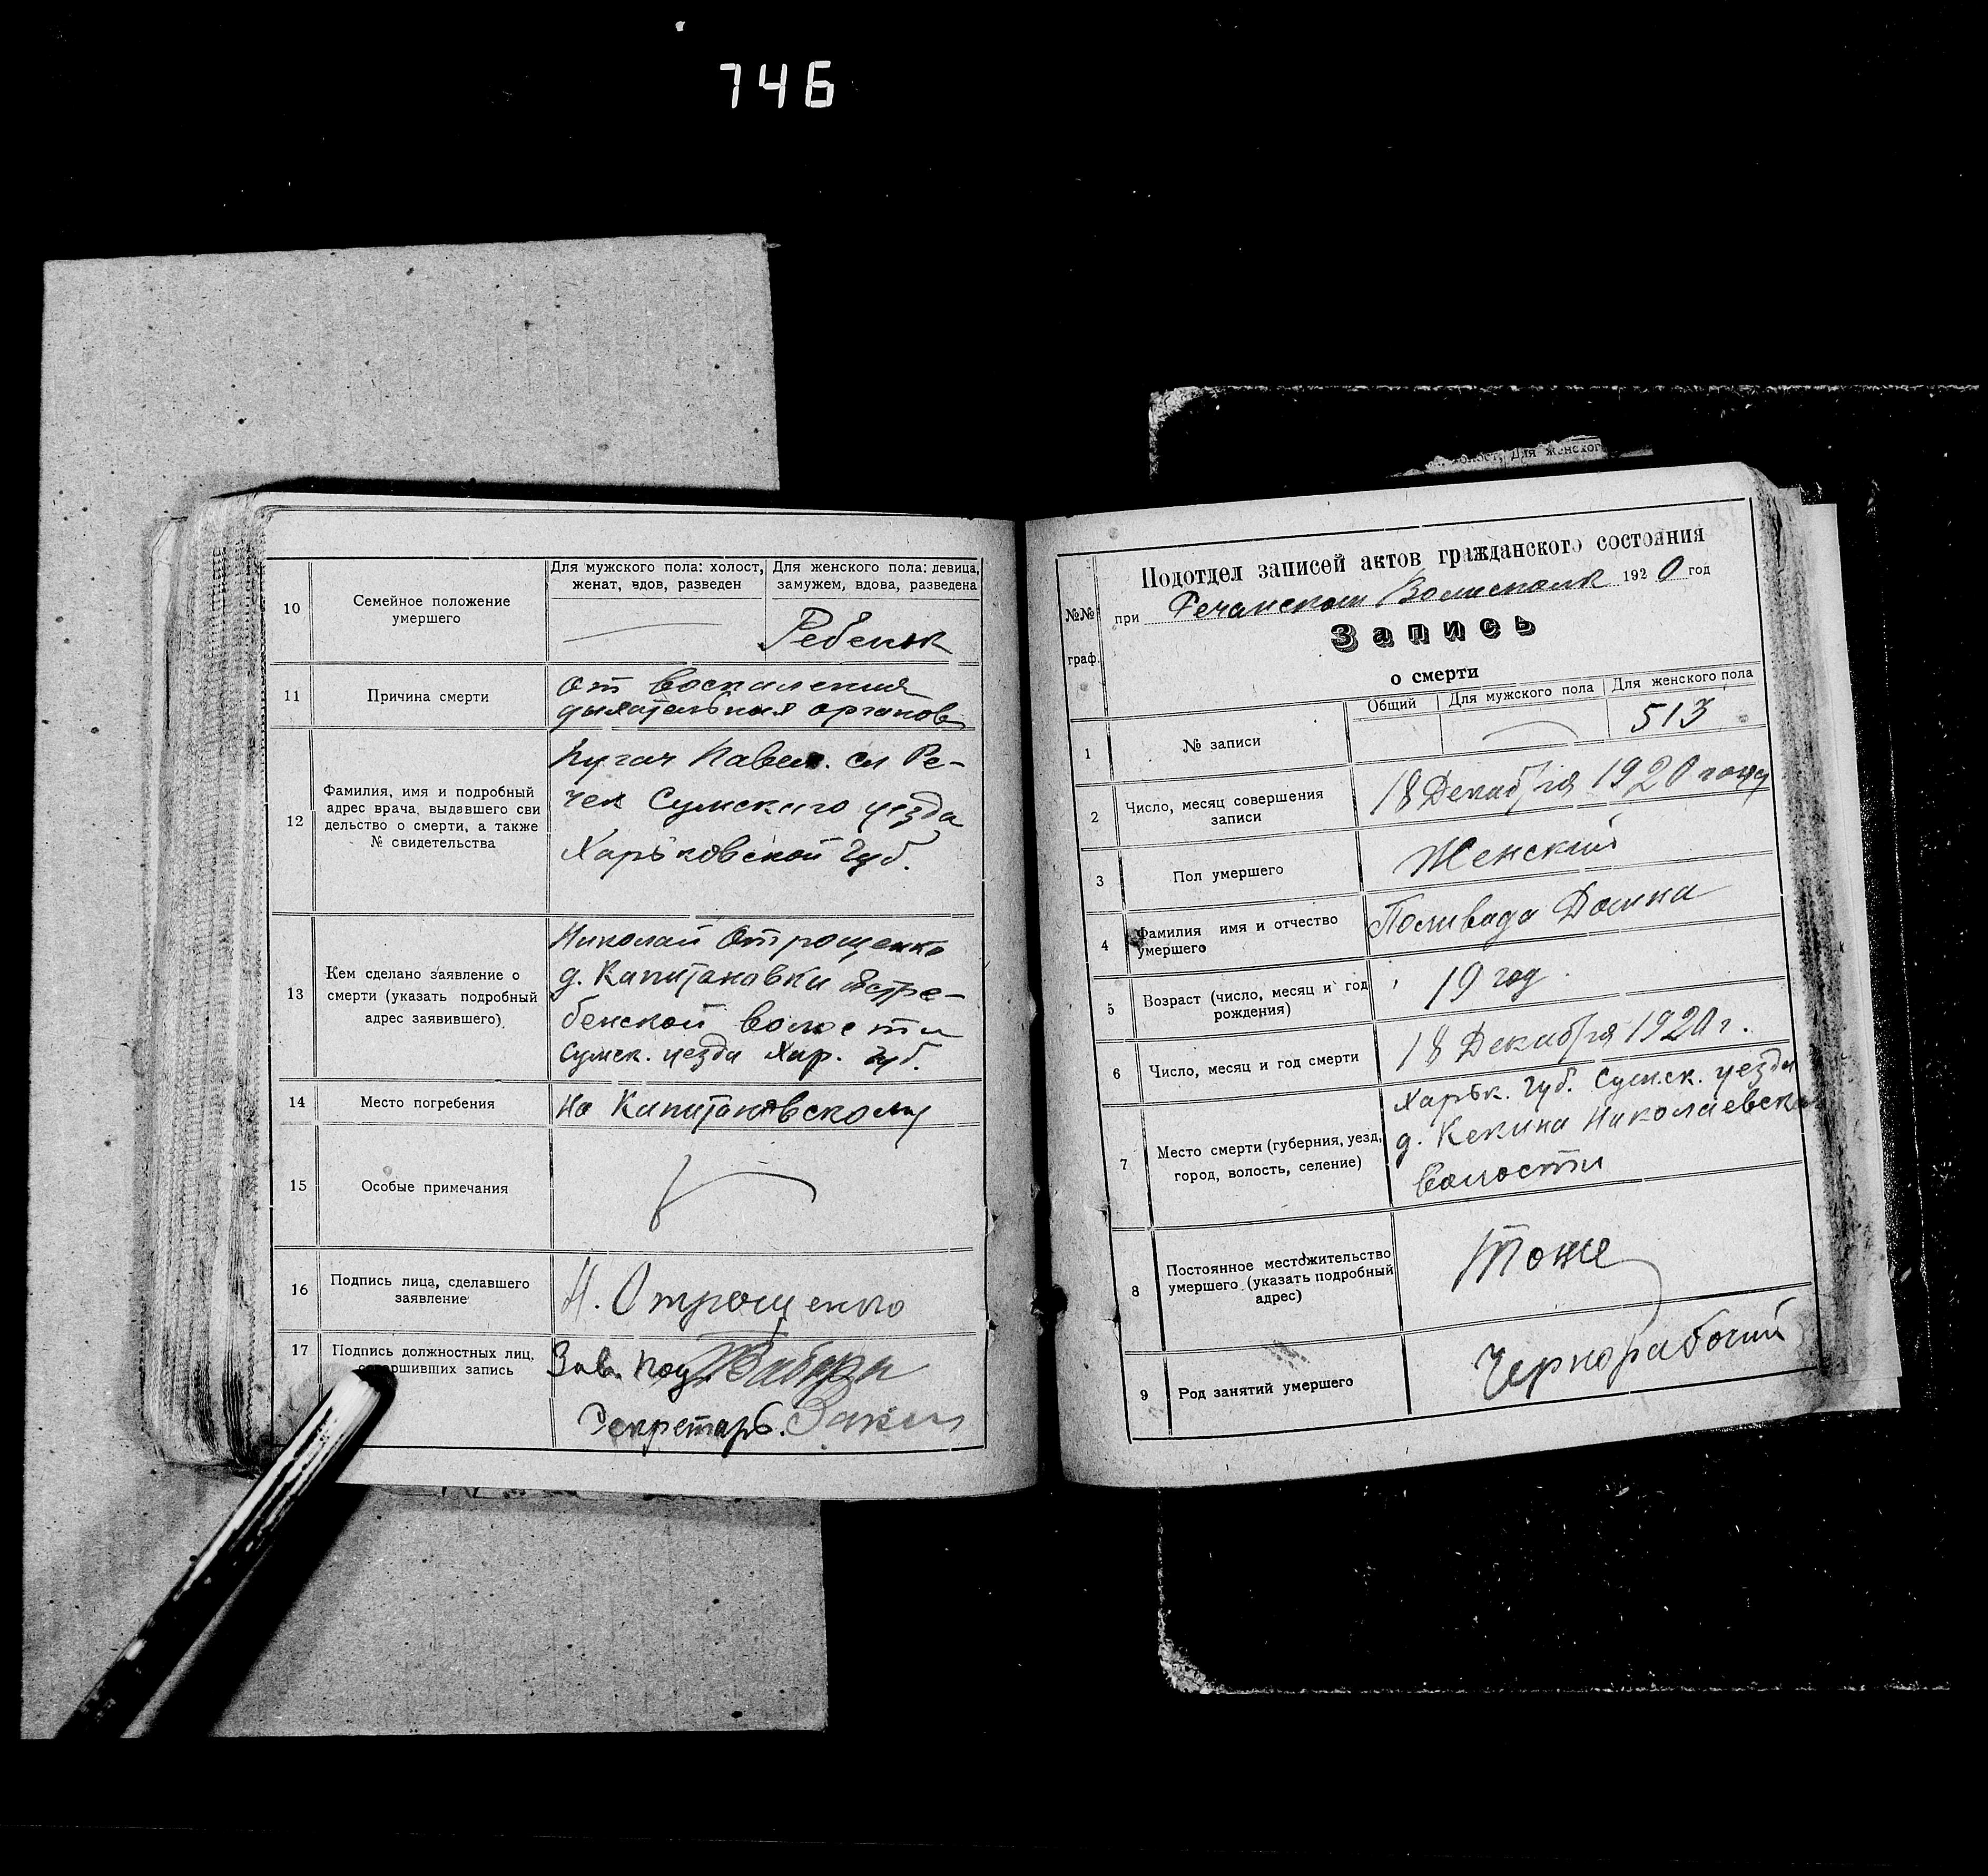 746
10
Семейное положение
умершего
Для мужского пола: холост,
женат, вдов, разведен
Для женского пола: девица,
замужем, вдова, разведена
Ребенок
11
Причина смерти
от воспаления
дыхательных органов
12
Фамилия, имя и подробный
адрес врача, выдавшего сви
дельство о смерти, а также
№ свидетельства
Пугач Павел. сл Ре-
чек Сумского уезда
Харьковской губ.
13
Кем сделано заявление о
смерти (указать подробный
адрес заявившего)
Николай Отрощенко
д. Капитановки Ястре-
бенской волости
Сумск. уезда Хар. губ.
14
Место погребения
на Капитановскому
15
Особые примечания
16
Подпись лица, сделавшего
заявление
Н. Отрощенко
17
Подпись должностных лиц,
совершивших запись
Зав. Под.
Секретарь.
олост, Для женског
№№
граф.
Подотдел записей актов гражданского состояния
при Речанском Волисполк 1920 год
Запись
о смерти
Общий
Для мужского пола
Для женского пола
1
№ записи
513
2
Число, месяц совершения
записи
18 Декабря 1920 году
3
Пол умершего
Женский
4
Фамилия имя и отчество
умершего
Поливода Домна
5
Возраст (число, месяц и год
рождения)
19 год.
6
Число, месяц и год смерти
18 Декабря 1920 г.
7
Место смерти (губерния, уезд,
город, волость, селение)
Харьк. губ. Сумск. уезда
д. Кекина Николаевской
волости
8
Постоянное местожительство
умершего (указать подробный
адрес)
тоже
9
Род занятий умершего
Чернорабочий